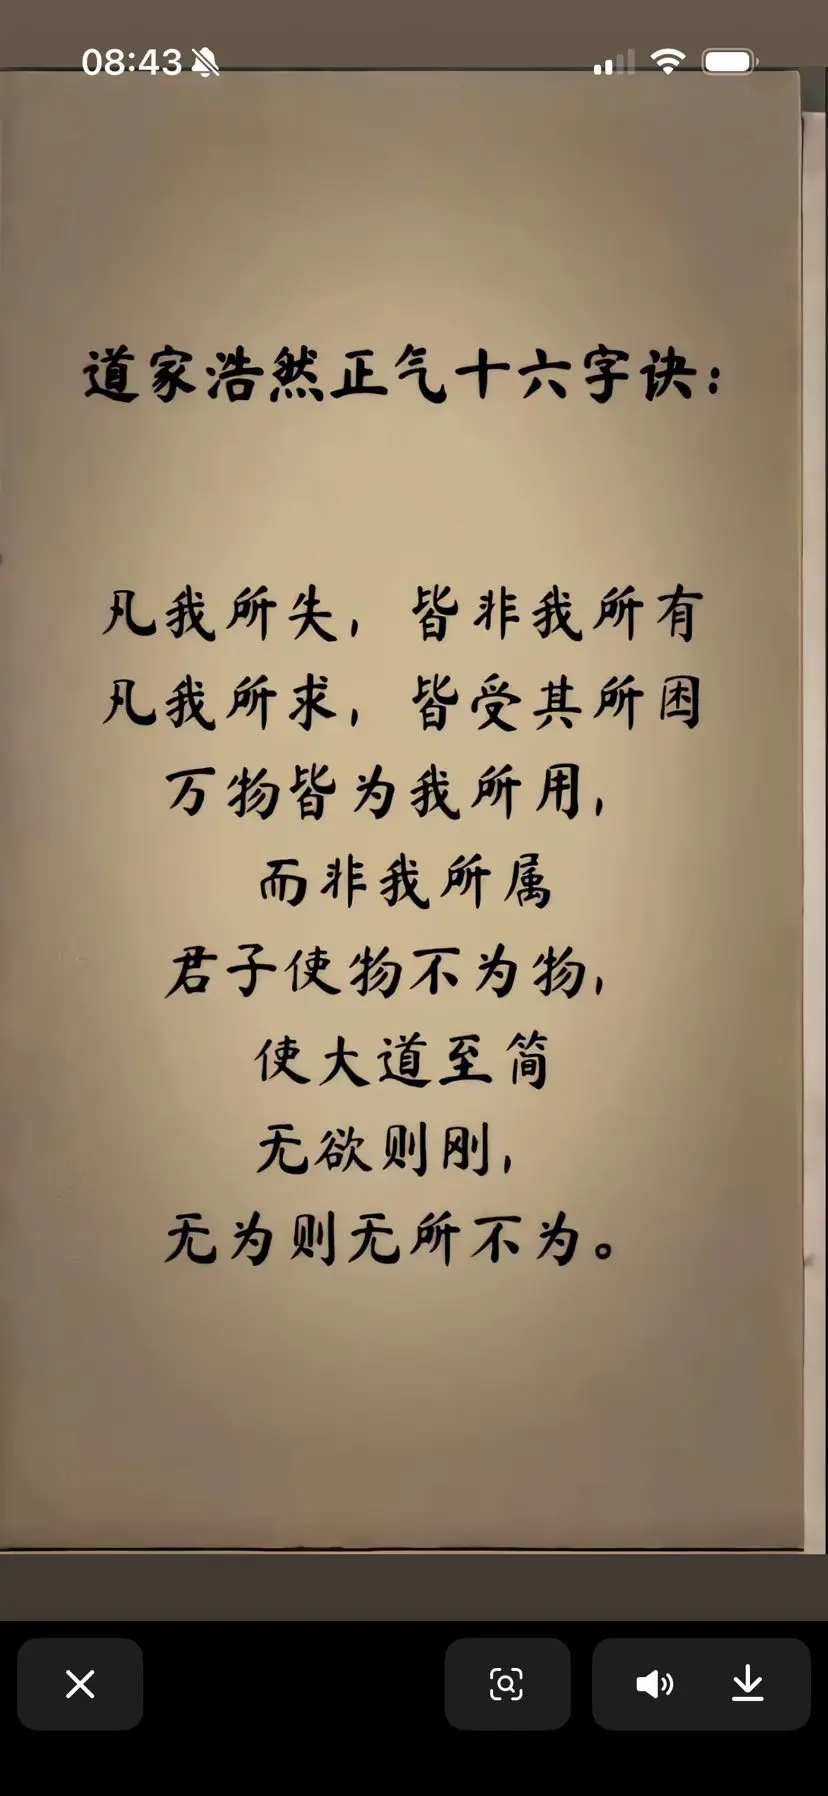 08:43
道家浩然正气十六字诀：
凡我所失，皆非我所有
凡我所求，皆受其所困
万物皆为我所用，
而非我所属
君子使物不为物，
使大道至简
无欲则刚，
无为则无所不为。